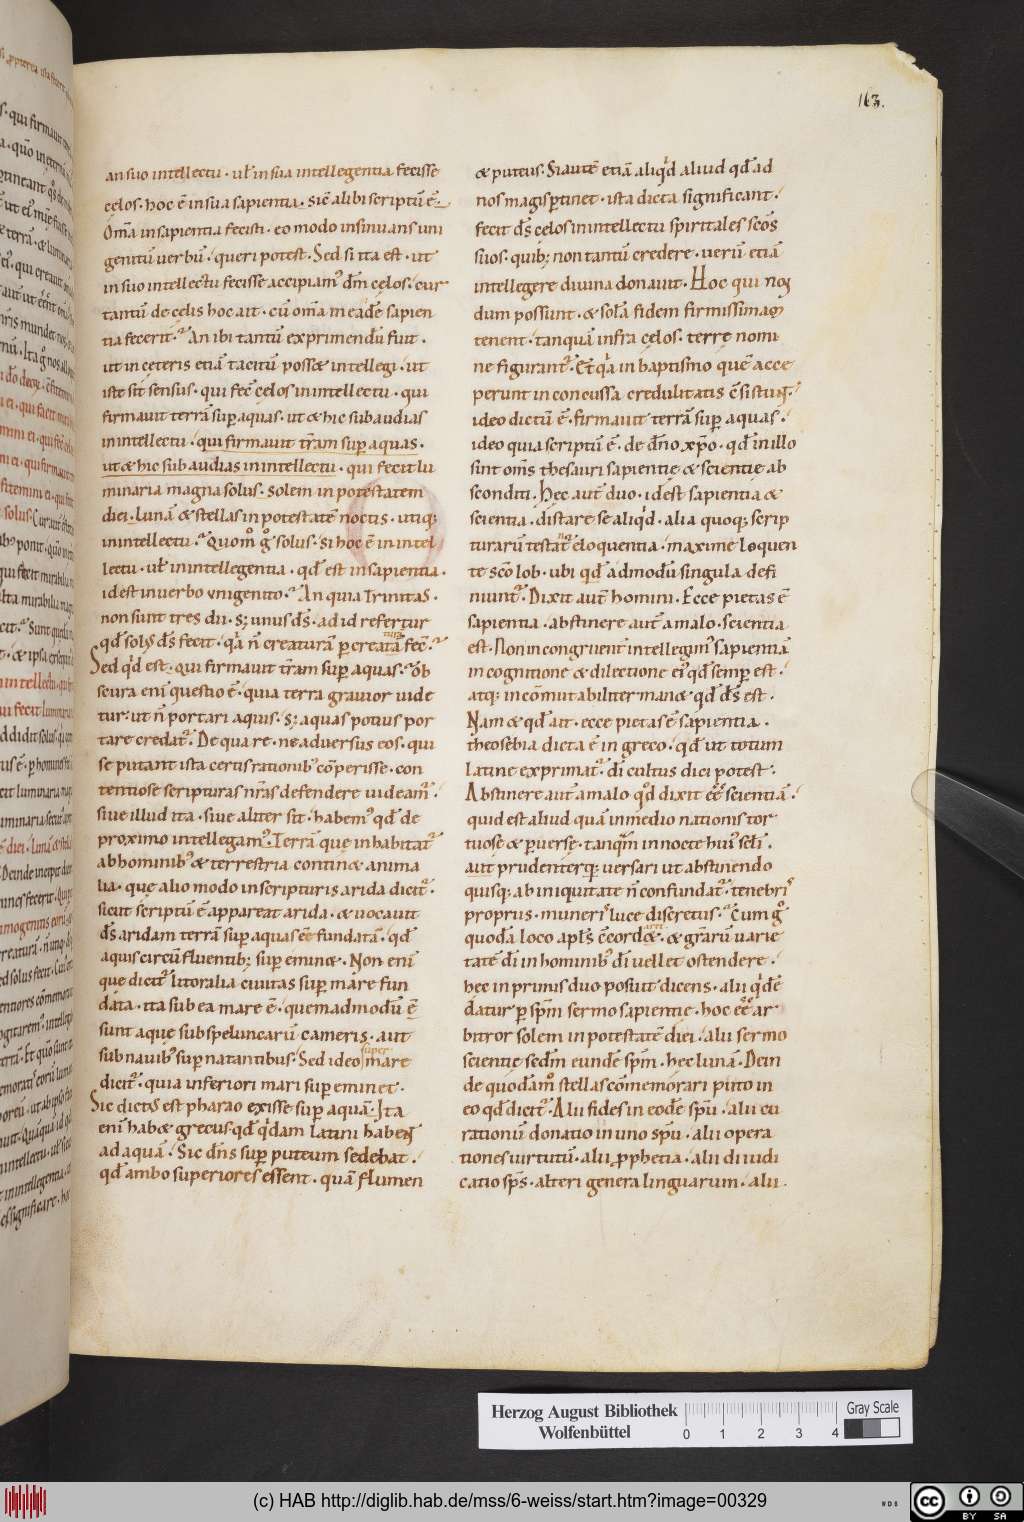 163.
an suo intellectu · ul̄ in sua intellegentia fecisse
cęlos · hoc ē in sua sapientia · sic̄ alibi scriptū ē ·
Om̄a in sapientia fecisti · eo modo insinuans uni
genitū uerbū · queri potest · Sed si ita est · ut
in suo intellectu fecisse accipiam᷒ dn̄m cęlos · cur
tantū de cęlis hoc ait · cū om̄a in eadē sapien
tia fecerit · An ibi tantū exprimendū fuit ·
ut in cęteris etiā tacitū posset intellegi · ut
iste sit sensus · qui fec̄ cęlos in intellectu · qui
firmauit terrā suꝑ aquas · ut & hic subaudias
in intellectu · qui firmauit tr̄am suꝑ aquas ·
ut & hic subaudias in intellectu · qui fecit lu
minaria magna solus · solem in potestatem
diei · lunā & stellas in potestatē noctis · utiq;
in intellectu · Quom̄ g̊ solus · si hoc ē in intel
lectu · ul̄ in intellegentia · qd̄ est in sapientia ·
id est in uerbo unigenito · An quia trinitas ·
non sunt tres dii · s; unus ds̄ · ad id refertur
qd̄ solus ds̄ fecit · qa n̄ creaturā ꝑ creatā fec̄ ·
Sed qd est · qui firmauit tr̄am suꝑ aquas · Ob
scura eni questio ē · quia terra grauior uide
tur · ut n̄ portari aquis · s; aquas potius por
tare credat᷑ · De qua re · ne aduersus eos · qui
se putant ista certis rationib᷒ cōperisse · con
tentiose scripturas nr̄as defendere uideam᷑ ·
siue illud ita · siue aliter sit · habem᷒ qd̄ de
proximo intellegam᷒ · Terrā que inhabitat᷑
ab hominib᷒ & terrestria contin& anima
lia · que alio modo in scripturis arida dicit᷑ ·
sicut scriptū ē appareat arida · & uocauit
ds̄ aridam terrā suꝑ aquas eē fundatā · qd̄
aquis circūfluentib; suꝑemin& · Non eni
que dicit᷑ litoralia ciuitas suꝑ mare fun
data · ita sub ea mare ē · quemadmodū ē
sunt aque sub speluncarū cameris · aut
sub nauib᷒ suꝑnatantibus · Sed ideo super mare
dicit᷑ · quia inferiori mari suꝑeminet ·
Sic dictus est pharao exisse suꝑ aquā · Ita
eni hab& grecus · qd̄ qdam latini habent
ad aquā · Sic dn̄s suꝑ puteum sedebat ·
qd̄ ambo superiores essent · quā flumen
& puteus · Si autē etiā aliqd aliud qd̄ ad
nos magis ꝑtinet · ista dicta significant ·
fecit ds̄ cęlos in intellectu spiritales scōs
suos · quib; non tantū credere · uerū etiā
intellegere diuina donauit · Hoc qui non
dum possunt · & solā fidem firmissimam
tenent · tanquā infra cęlos · terrę nomi
ne figurant᷑ · Et qa in baptismo quē acce
perunt inconcussa credulitatis cs̄istunt ·
ideo dictū ē · firmauit terrā suꝑ aquas ·
ideo quia scriptū ē · de dn̄o xp̄o · qd̄ in illo
sint om̄s thesauri sapientię & scientię ab
sconditi · Hec aut̄ duo · id est sapientia &
scientia · distare se aliqd · alia quoq; scrip
turarū testat᷑ eloquentia · maxime loquen
te scō Iob · ubi qd admodū singula defi
niunt᷑ · Dixit aut̄ homini · Ecce pietas ē
sapientia · abstinere aut̄ a malo · scientia
est · Non incongruent̄ intellegim᷒ sapientiā
in cognitione & dilectione ei᷒ qd̄ semꝑ est ·
atq; incōmutabiliter man& qd̄ ds̄ est ·
Nam & qd̄ ait · ecce pietas ē sapientia ·
theosebia dicta ē in greco · qd̄ ut totum
latine exprimat᷑ · di cultus dici potest ·
Abstinere aut̄ a malo qd̄ dixit eē scientiā ·
quid est aliud quā in medio nationis tor
tuose & ꝑuersę · tanqm̄ in nocte hui᷒ scl̄i ·
aut prudenterq; uersari ut abstinendo
quisq; ab iniquitate n̄ confundat᷑ · tenebris
propriis · muneris luce discretus · Cum g̊
quodā loco apl̄s cc̄ord& · & gr̄arū uarie
tatē di in hominib᷒ di uellet ostendere ·
hec in primis duo posuit dicens · alii qdē
datur ꝑ sp̄m sermo sapientię · hoc eē ar
bitror solem in potestatē diei · alii sermo
scientię sedm̄ eundē sp̄m · hec lunā · Dein
de quodāmo stellas cōmemorari puto in
eo qd̄ dicit᷑ · Alii fides in eodē sp̄u · alii cu
rationū donatio in uno sp̄u · alii opera
tiones uirtutū · alii ꝓphetia · alii diiudi
catio sp̄s · alteri genera linguarum · alii ·
Herzog August Bibliothek
Wolfenbüttel
0 1 2 3 4
Gray Scale
(c) HAB http://diglib.hab.de/mss/6-weiss/start.htm?image=00329
cc BY SA